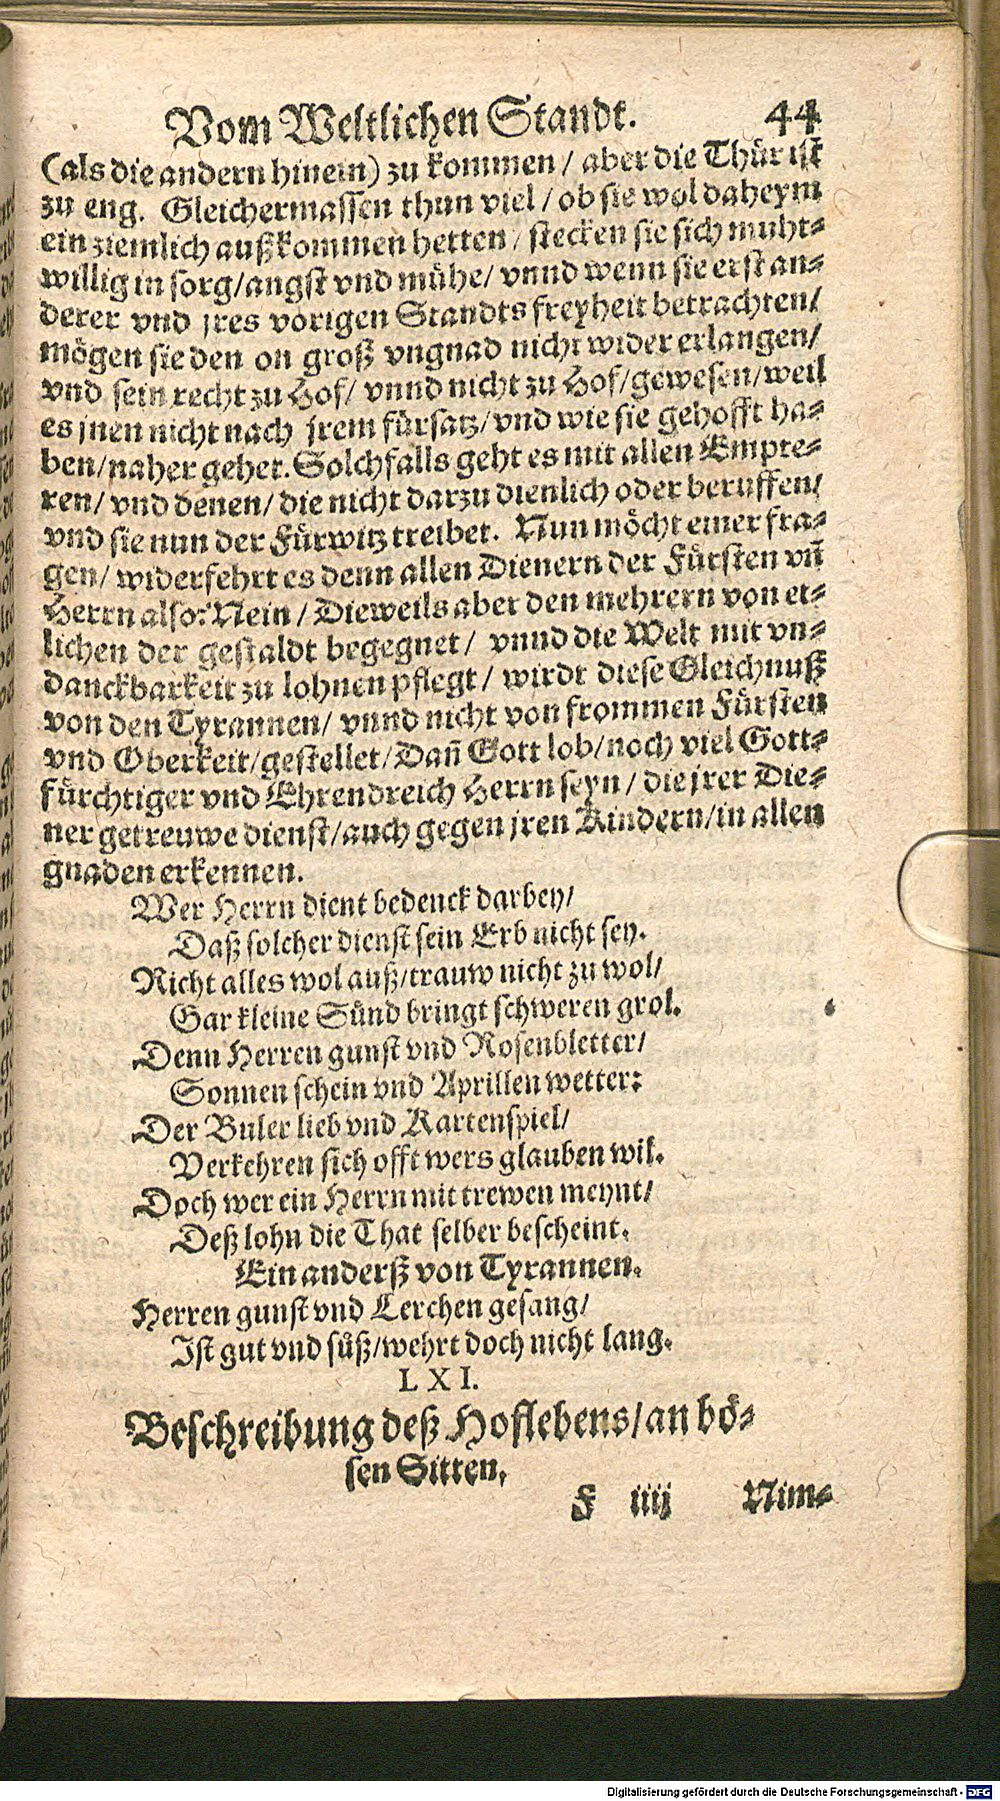 Vom Weltlichen Standt. 44
(als die andern hinein) zu kommen / aber die Thür ist
zu eng. Gleichermassen thun viel / ob sie wol daheym
ein ziemlich außkommen hetten / stecken sie sich muht-
willig in sorg/angst vnd mühe/ vnnd wenn sie erst an-
derer vnd jres vorigen Standts freyheit betrachten/
mögen sie den on groß vngnad nicht wider erlangen/
vnd sein recht zu Hof/ vnnd nicht zu Hof/gewesen/weil
es jnen nicht nach jrem fürsatz/vnd wie sie gehofft ha-
ben/naher gehet. Solchfalls geht es mit allen Empte-
ren/ vnd denen/ die nicht darzu dienlich oder beruffen/
vnd sie nun der Fürwitz treibet. Nun möcht einer fra-
gen/ widerfehrt es denn allen Dienern der Fürsten vñ
Herrn also: Nein / Dieweils aber den mehrern von et-
lichen der gestaldt begegnet/ vnnd die Welt mit vn-
danckbarkeit zu lohnen pflegt/ wirdt diese Gleichnuß
von den Tyrannen/ vnnd nicht von frommen Fürsten
vnd Oberkeit/gestellet/Dañ Gott lob/noch viel Gott-
fürchtiger vnd Ehrendreich Herrn seyn/ die jrer Die-
ner getreuwe dienst/auch gegen jren Kindern/in allen
gnaden erkennen.
Wer Herrn dient bedenck darbey/
Daß solcher dienst sein Erb nicht sey.
Richt alles wol auß/trauw nicht zu wol/
Gar kleine Sünd bringt schweren grol.
Denn Herren gunst vnd Rosenbletter/
Sonnen schein vnd Aprillen wetter:
Der Buler lieb vnd Kartenspiel/
Verkehren sich offt wers glauben wil.
Doch wer ein Herrn mit trewen meynt/
Deß lohn die That selber bescheint.
Ein anderß von Tyrannen.
Herren gunst vnd Lerchen gesang/
Ist gut vnd süß/wehrt doch nicht lang.
L X I.
Beschreibung deß Hoflebens/an bö-
sen Sitten.
F iiij Nim-
Digitalisierung gefördert durch die Deutsche Forschungsgemeinschaft - DFG